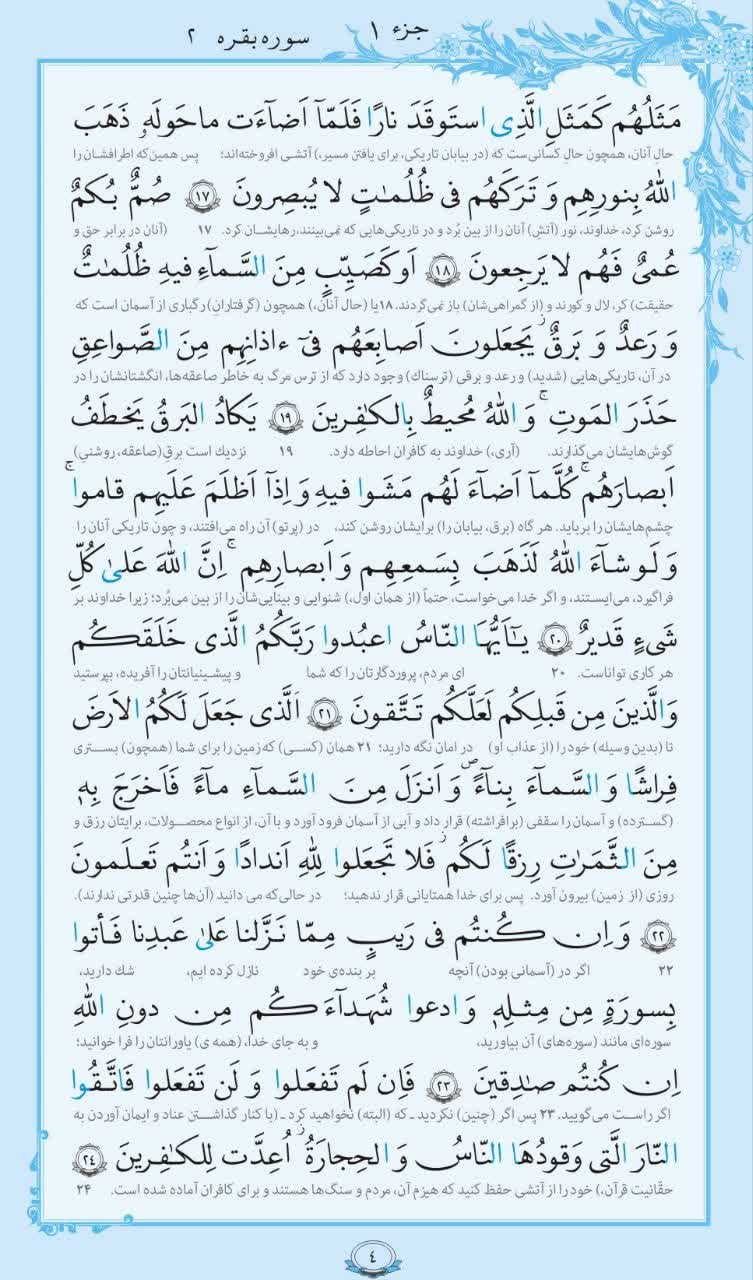 جزء ۱ سوره بقره ۲
مَثَلُهُم كَمَثَلِ الَّذِی استَوقَدَ نارًا فَلَمّآ اَضآءَت ماحَولَهۥ ذَهَبَ
حال آنان، همچون حال کسانی‌ست که (در بیابان تاریکی، برای یافتن مسیر،) آتشی افروخته‌اند؛ پس همین‌که اطرافشان را
اللّٰهُ بِنورِهِم وَ تَرَكَهُم فی ظُلُمٰتٍ لا یُبصِرونَ ﴿۱۷﴾ صُمٌّ بُكمٌ
روشن کرد، خداوند، نور (آتش) آنان را از بین بُرد و در تاریکی‌هایی که نمی‌بینند، رهایشان کرد. ۱۷ (آنان در برابر حق و
عُمیٌ فَهُم لا یَرجِعونَ ﴿۱۸﴾ اَو كَصَیِّبٍ مِنَ السَّمآءِ فیهِ ظُلُمٰتٌ
حقیقت) کر، لال و کورند و (از گمراهی‌شان) باز نمی‌گردند. ۱۸ یا (حال آنان،) همچون (گرفتارانِ) رگباری از آسمان است که
وَ رَعدٌ وَ بَرقٌ ۚ یَجعَلونَ اَصابِعَهُم فیٓ ءاذانِهِم مِنَ الصَّواعِقِ
در آن، تاریکی‌هایی (شدید) و رعد و برقی (ترسناک) وجود دارد که از ترس مرگ به خاطر صاعقه‌ها، انگشتانشان را در
حَذَرَ المَوتِ ۚ وَ اللّٰهُ مُحیطٌ بِالكٰفِرینَ ﴿۱۹﴾ یَكادُ البَرقُ یَخطَفُ
گوش‌هایشان می‌گذارند. (آری،) خداوند به کافران احاطه دارد. ۱۹ نزدیک است برق (صاعقه، روشنیِ)
اَبصارَهُم ۚ كُلَّمآ اَضآءَ لَهُم مَشَوا فیهِ وَ اِذآ اَظلَمَ عَلَیهِم قاموا ۚ
چشم‌هایشان را برباید. هر گاه (برق، بیابان را) برایشان روشن کند، در (پرتو) آن راه می‌افتند، و چون تاریکی آنان را
وَ لَو شآءَ اللّٰهُ لَذَهَبَ بِسَمعِهِم وَ اَبصارِهِم ۚ اِنَّ اللّٰهَ عَلیٰ كُلِّ
فراگیرد، می‌ایستند، و اگر خدا می‌خواست، حتماً (از همان اول،) شنوایی و بینایی‌شان را از بین می‌بُرد؛ زیرا خداوند بر
شَیءٍ قَدیرٌ ﴿۲۰﴾ یٰٓاَیُّهَا النّاسُ اعبُدوا رَبَّكُمُ الَّذی خَلَقَكُم
هر کاری تواناست. ۲۰ ای مردم، پروردگارتان را که شما و پیشینیانتان را آفریده، بپرستید
وَالَّذینَ مِن قَبلِكُم لَعَلَّكُم تَتَّقونَ ﴿۲۱﴾ اَلَّذی جَعَلَ لَكُمُ الاَرضَ
تا (بدین وسیله) خود را (از عذاب او) در امان نگه دارید؛ ۲۱ همان (کسی) که زمین را برای شما (همچون) بستری
فِراشًا وَ السَّمآءَ بِنآءً وَ اَنزَلَ مِنَ السَّمآءِ مآءً فَاَخرَجَ بِهٖ
(گسترده) و آسمان را سقفی (برافراشته) قرار داد و آبی از آسمان فرود آورد و با آن، از انواع محصولات، برایتان رزق و
مِنَ الثَّمَرٰتِ رِزقًا لَكُم ۚ فَلا تَجعَلوا لِلّٰهِ اَندادًا وَ اَنتُم تَعلَمونَ
روزی (از زمین) بیرون آورد. پس برای خدا همتایانی قرار ندهید؛ در حالی‌که می دانید (آن‌ها چنین قدرتی ندارند).
﴿۲۲﴾ وَ اِن كُنتُم فی رَیبٍ مِمّا نَزَّلنا عَلیٰ عَبدِنا فَأتوا
۲۲ اگر در (آسمانی بودن) آنچه بر بنده‌ی خود نازل کرده ایم، شک دارید،
بِسورَةٍ مِن مِثلِهٖ وَ ادعوا شُهَدآءَكُم مِن دونِ اللّٰهِ
سوره‌ای مانند (سوره‌های) آن بیاورید، و به جای خدا، (همه ی) یاورانتان را فرا خوانید؛
اِن كُنتُم صٰدِقینَ ﴿۲۳﴾ فَاِن لَم تَفعَلوا وَ لَن تَفعَلوا فَاتَّقُوا
اگر راست می‌گویید. ۲۳ پس اگر (چنین) نکردید ـ که (البته) نخواهید کرد ـ (با کنار گذاشتن عناد و ایمان آوردن به
النّارَ الَّتی وَقودُهَا النّاسُ وَ الحِجارَةُ ۚ اُعِدَّت لِلكٰفِرینَ ﴿۲۴﴾
حقّانیت قرآن،) خود را از آتشی حفظ کنید که هیزم آن، مردم و سنگ‌ها هستند و برای کافران آماده شده است. ۲۴
٤